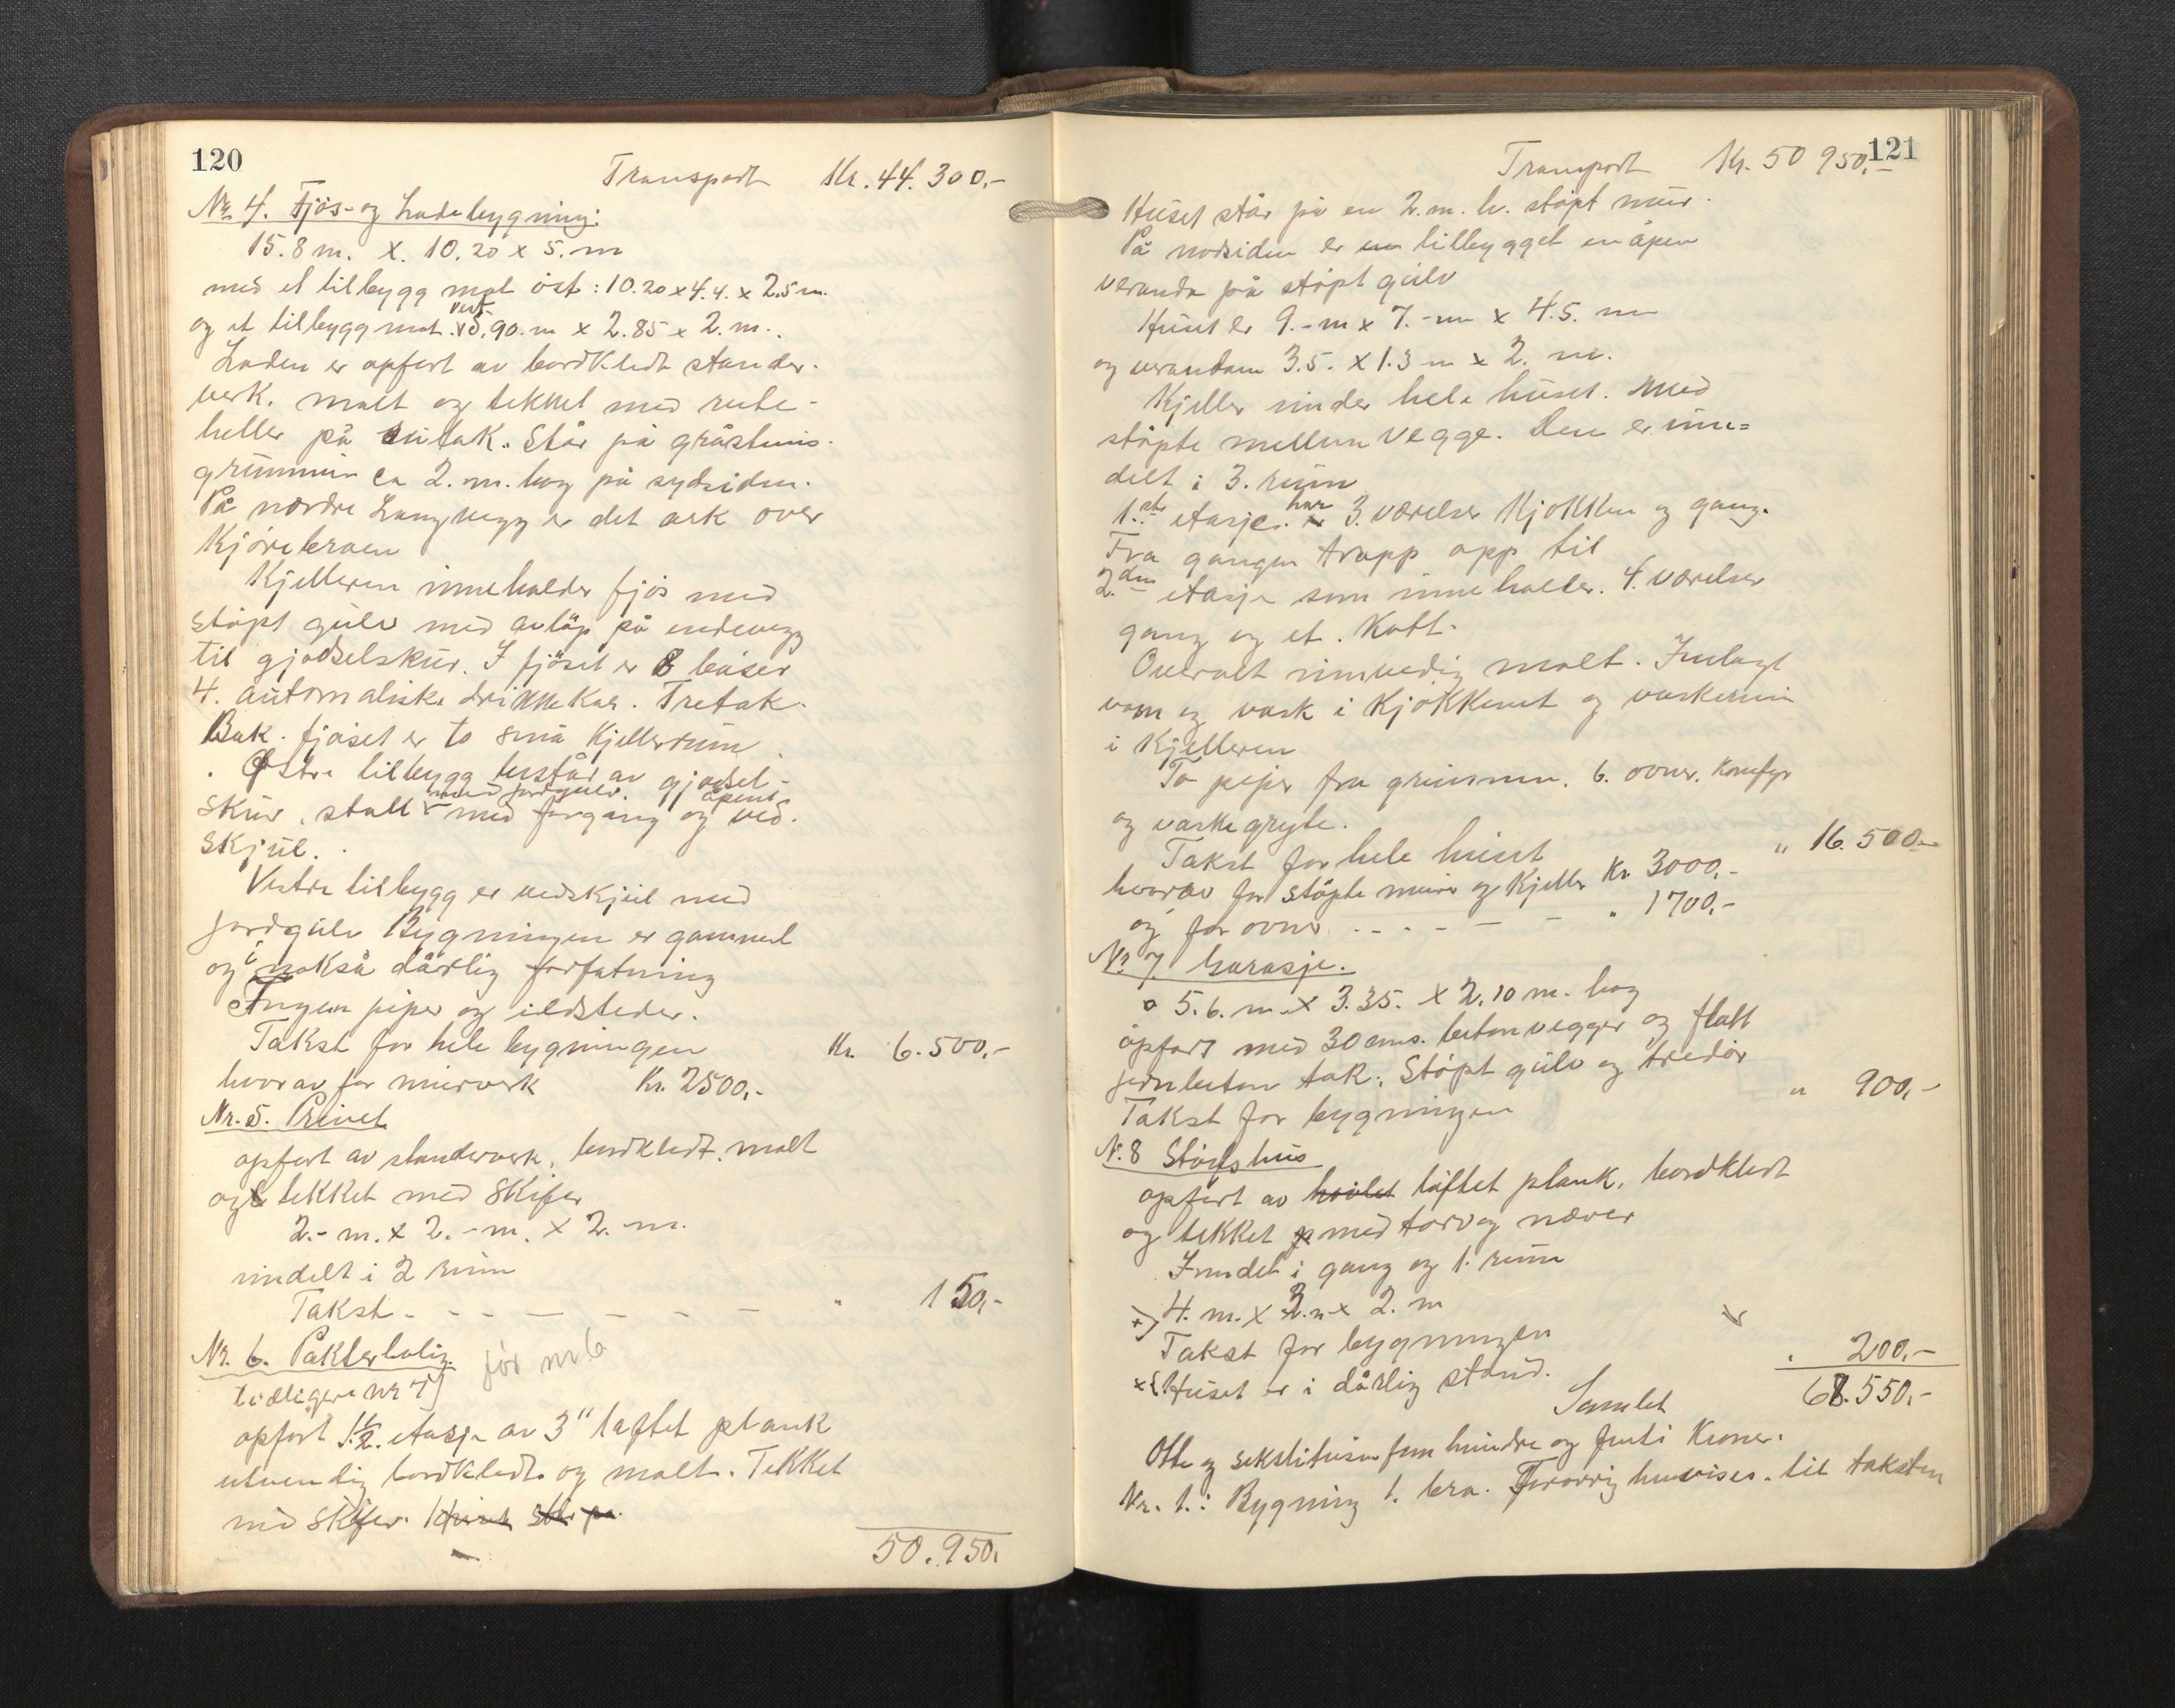 120
Transport Kr. 44.300,-
Nr. 4. Fjös- og Ladebygning:
15.8 m. x. 10.20 x 5. m
med et tilbygg mot öst: 10.20 x 4.4. x 2.5 m.
og et tilbygg mot vest 5.90. m x 2.85 x 2. m.
Laden er opfört av bordkledt stander-
verk. malt og tekket med rute-
heller på sutak. Står på gråstens-
grunnmur ca 2. m. høg på sydsiden.
På nordre Langvegg er det ark over
Kjörebroen
Kjelleren inneholder fjös med
stöpt gulv med avlöp på endevegg
til gjødselskur. I fjöset er 8 båser
4. automatiske drikkekar. Tretak.
Bak. fjöset er to små Kjellerrum
Østre tilbygg består av gjødsel-
skur, stall med jordgulv. med forgang og åpent ved-
skjul.
Vestre tilbygg er vedskjul med
jordgulv Bygningen er gammel
og i nokså dårlig forfatning
Ingen piper og ildsteder.
Takst for hele bygningen Kr. 6.500,-
hvorav for murverk Kr. 2500,-
Nr. 5. Privet
opfört av standerverk, bordkledt. malt
og tekket med Skifer
2.- m. x 2.- m. x 2.- m.
inndelt i 2 rum
Takst - - - - - - - " 150,-
Nr. 6. Pakterbolig. för nr 6
tidligere nr 7]
opfört 1 1/2. etasje av 3" laftet plank
utvendig bordkledt og malt. Tekket
med Skifer. Huset står på
50.950,
121
Transport Kr. 50 950,-
Huset står på en 2. m. h. stöpt mur.
På nordsiden er en tilbygget en åpen
veranda på stöpt gulv
Huset er 9.- m x 7.- m x 4.5. m
og verandaen 3.5. x 1.3 m x 2. m.
Kjeller under hele huset. Med
stöpte mellum vegge. Den er inn=
delt i 3. rum
1.ste etasje. har 3. værelser Kjökken og gang.
Fra gangen trapp opp til
2.den etasje som inneholder. 4. værelser
gang og et. Kott.
Overalt innvendig malt. Innlagt
vann og vask i Kjökkenet og vaskerum
i Kjelleren
To piper fra grunnen. 6. ovner. Komfyr
og vaskegryte.
Takst for hele huset " 16.500,-
hvorav for stöpte murer og Kjeller Kr. 3000,-
og for ovner . - . - - - - " 1700,-
Nr 7. Garasje.
5.6. m. x 3.35. x 2.10 m. høg
opfört med 30 cms. betonvegger og flatt
jernbeton tak. Stöpt gulv og tredör
Takst for bygningen " 900,-
N. 8 Stölshus
opfört av hövlet laftet plank, bordkledt
og tekket med torv og never
Inndelt i gang og 1. rum
+) 4. m. x 3. m x 2. m
Takst for bygningen . 200,-
x{ Huset er i dårlig stand.
Samlet 68.550,-
Otte og sekstitusen fem hundre og femti Kroner.
Nr. 1.: Bygning 1. bra. Forövrig henvises. til taksten